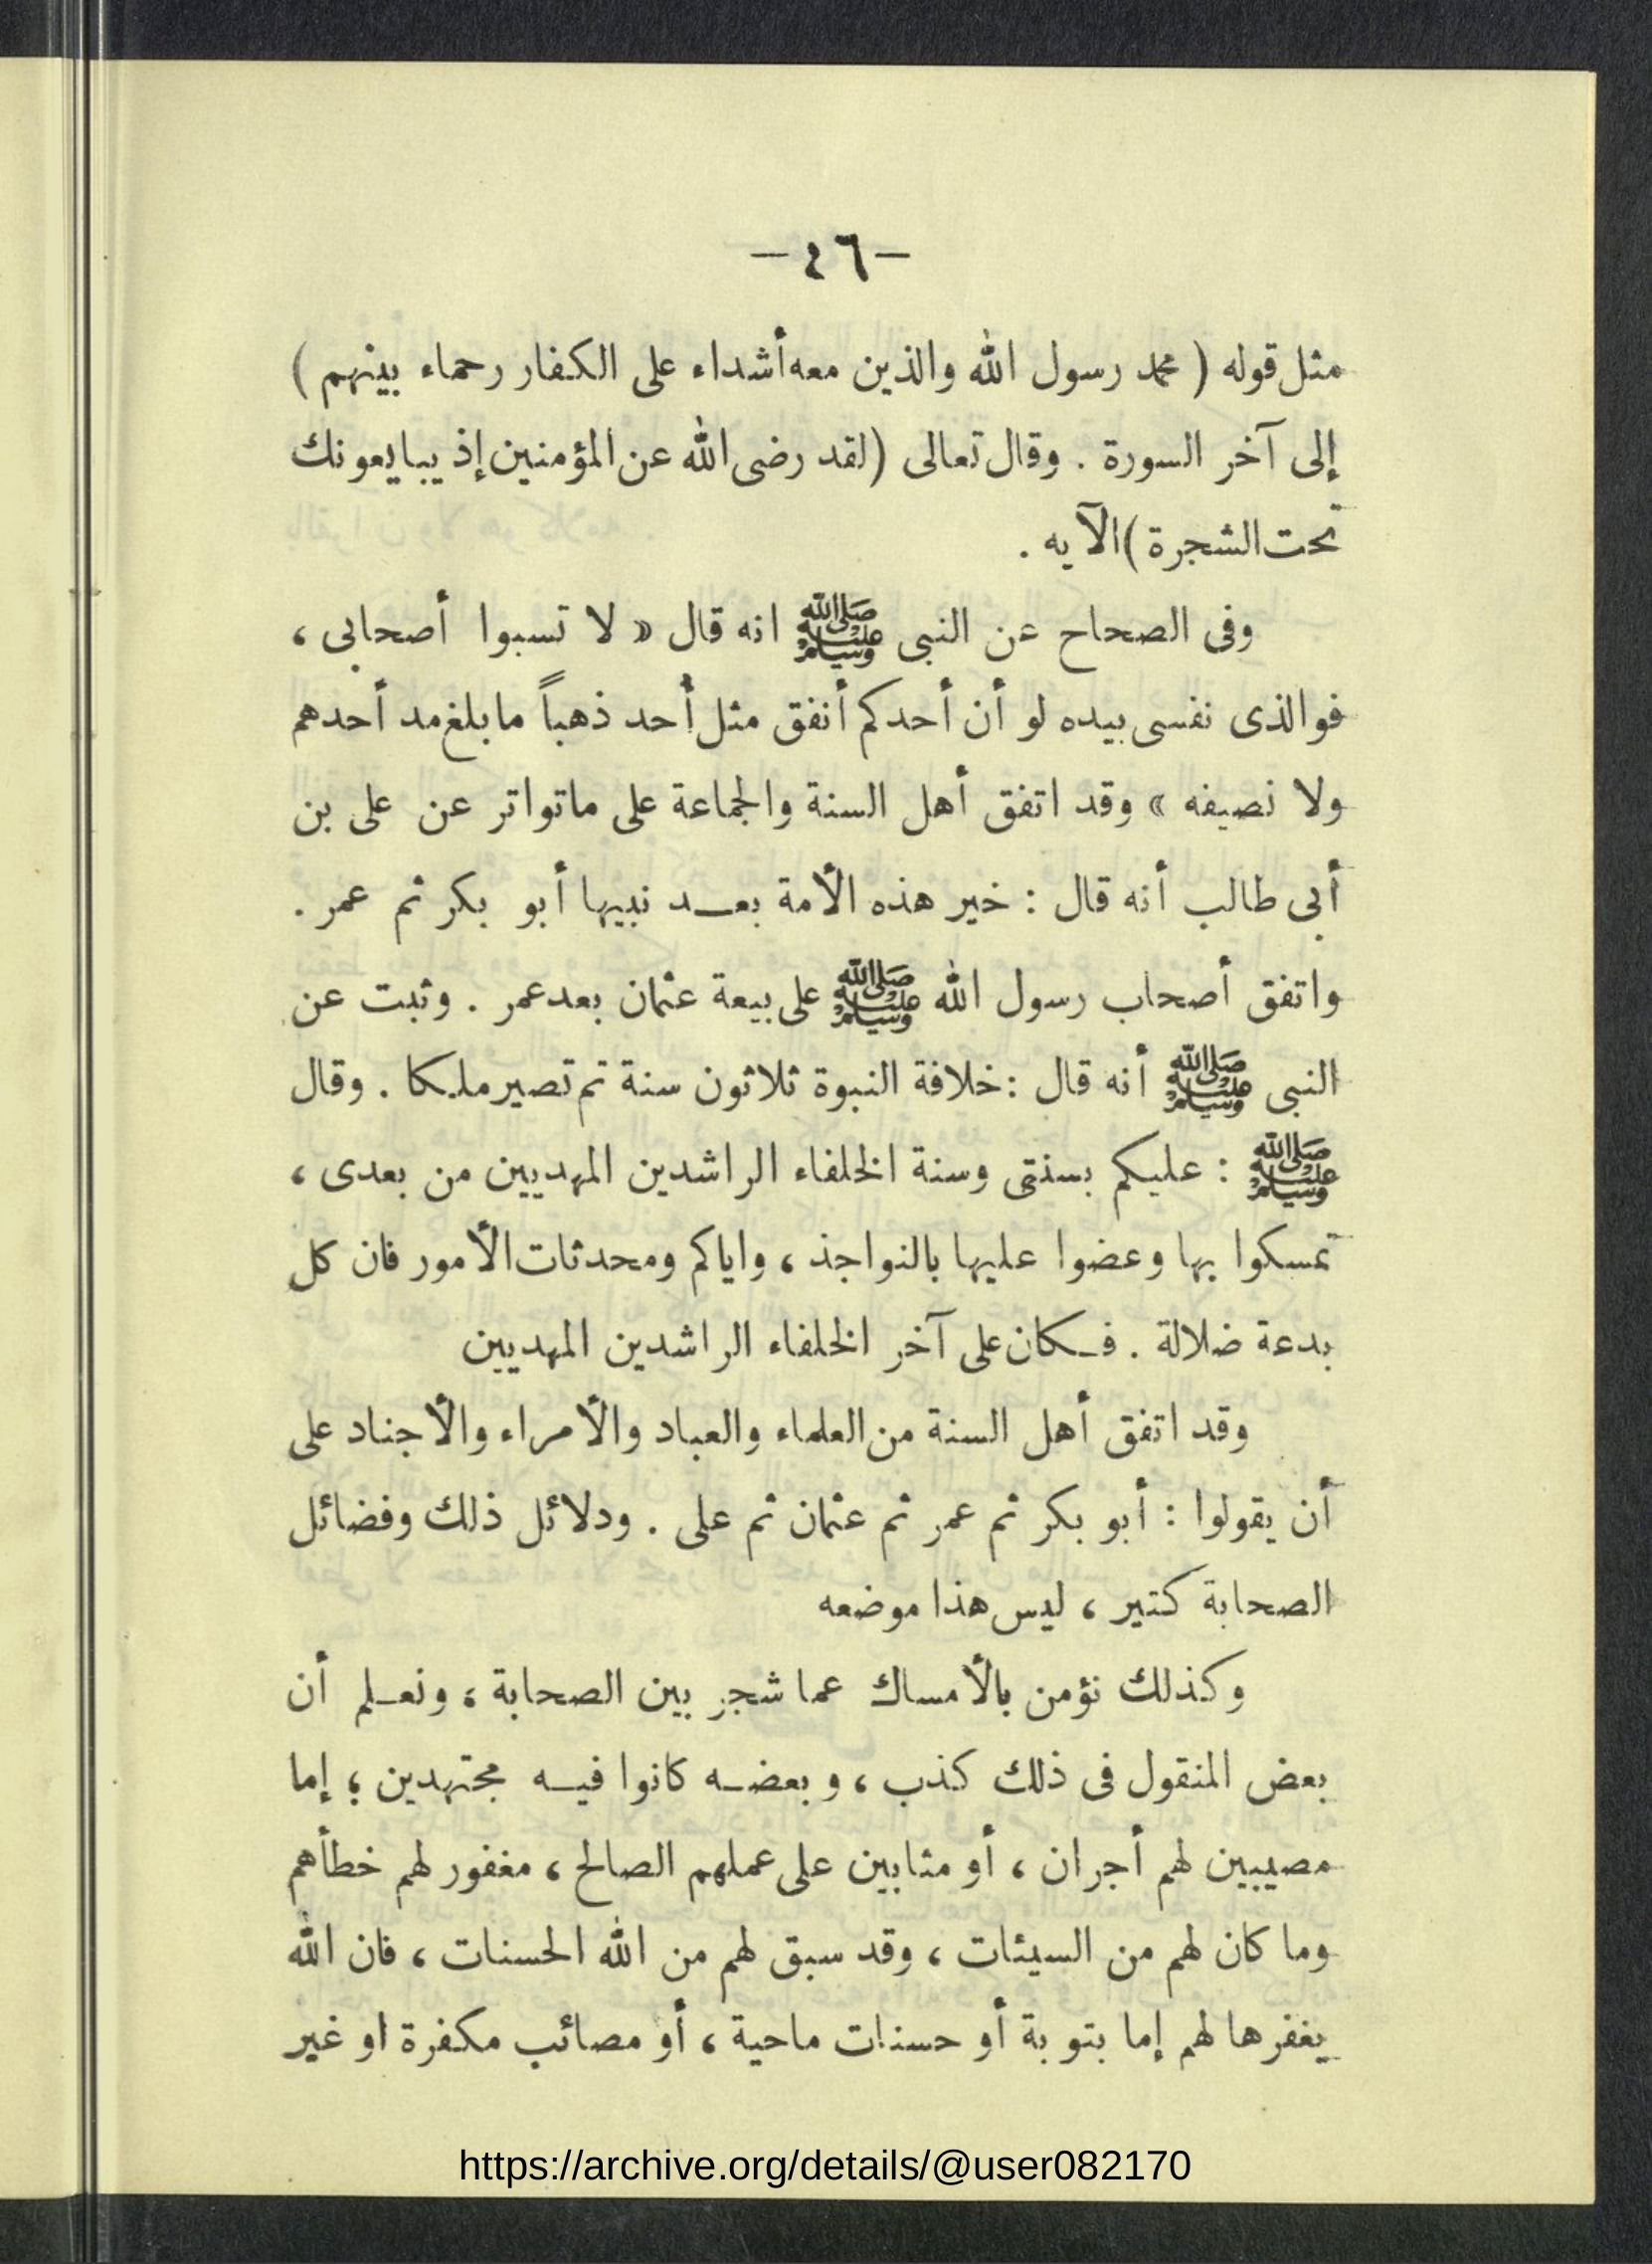 — ٤٦ —
مثل قوله ( محمد رسول الله والذين معه أشداء على الكفار رحماء بينهم )
إلى آخر السورة . وقال تعالى (لقد رضى الله عن المؤمنين إذ يبايعونك
تحت الشجرة ) الآيه .
وفى الصحاح عن النبى ﷺ انه قال « لا تسبوا أصحابى ،
فوالذى نفسى بيده لو أن أحدكم أنفق مثل أُحد ذهباً ما بلغ مد أحدهم
ولا نصيفه » وقد اتفق أهل السنة والجماعة على ماتواتر عن على بن
أبى طالب أنه قال : خير هذه الأمة بعد نبيها أبو بكر ثم عمر .
واتفق أصحاب رسول الله ﷺ على بيعة عثمان بعد عمر . وثبت عن
النبى ﷺ أنه قال : خلافة النبوة ثلاثون سنة ثم تصير ملكا . وقال
ﷺ : عليكم بسنتى وسنة الخلفاء الراشدين المهديين من بعدى ،
تمسكوا بها وعضوا عليها بالنواجذ ، واياكم ومحدثات الأمور فان كل
بدعة ضلالة . فكان على آخر الخلفاء الراشدين المهديين
وقد اتفق أهل السنة من العلماء والعباد والأمراء والأجناد على
أن يقولوا : أبو بكر ثم عمر ثم عثمان ثم على . ودلائل ذلك وفضائل
الصحابة كثير ، ليس هذا موضعه
وكذلك نؤمن بالأمساك عما شجر بين الصحابة ، ونعلم أن
بعض المنقول فى ذلك كذب ، وبعضه كانوا فيه مجتهدين ؛ إما
مصيبين لهم أجران ، أو مثابين على عملهم الصالح ، مغفور لهم خطأهم
وما كان لهم من السيئات ، وقد سبق لهم من الله الحسنات ، فان الله
يغفرها لهم إما بتوبة أو حسنات ماحية ، أو مصائب مكفرة او غير
https://archive.org/details/@user082170